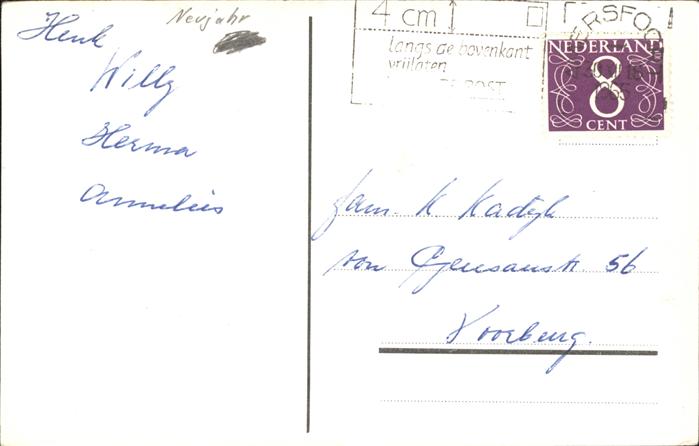 Neujahr
Henk
Willy
Herma
Annelies
4 cm
langs de bovenkant
vrijlaten
POST
ERSFOO
1965
NEDERLAND
8
CENT
fam. K Kadijk
van 56
Voorburg.